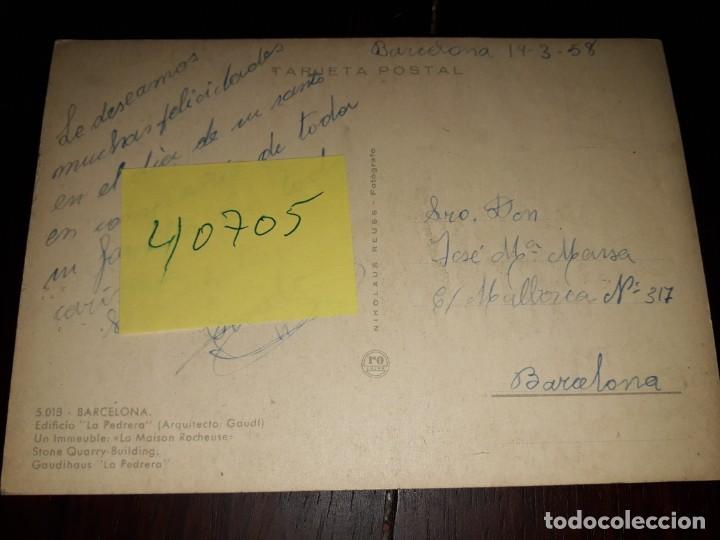 Barcelona 14-3-58
TARJETA POSTAL
Le deseamos
muchas felicidades
en el día de su santo
en de toda
su
40705
NIKOLAUS REUSS - Fotógrafo
Sro. Don
José Mª Marsa
C/ Mallorca Nº 317
Barcelona
5.018 - BARCELONA.
Edificio "La Pedrera" (Arquitecto: Gaudí)
Un Immeuble: «La Maison Rocheuse»
Stone Quarry-Building.
Gaudihaus "La Pedrera"
todocoleccion
todocoleccion.net